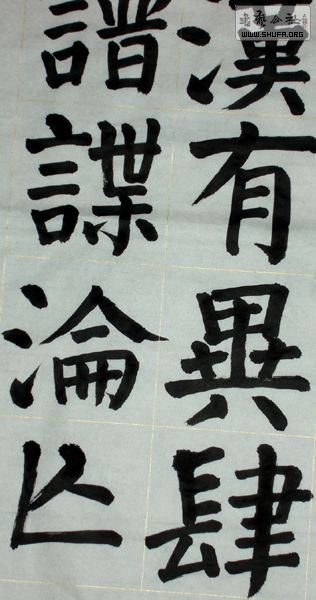 漢有異肆
譜諜淪亾
WWW.SHUFA.ORG